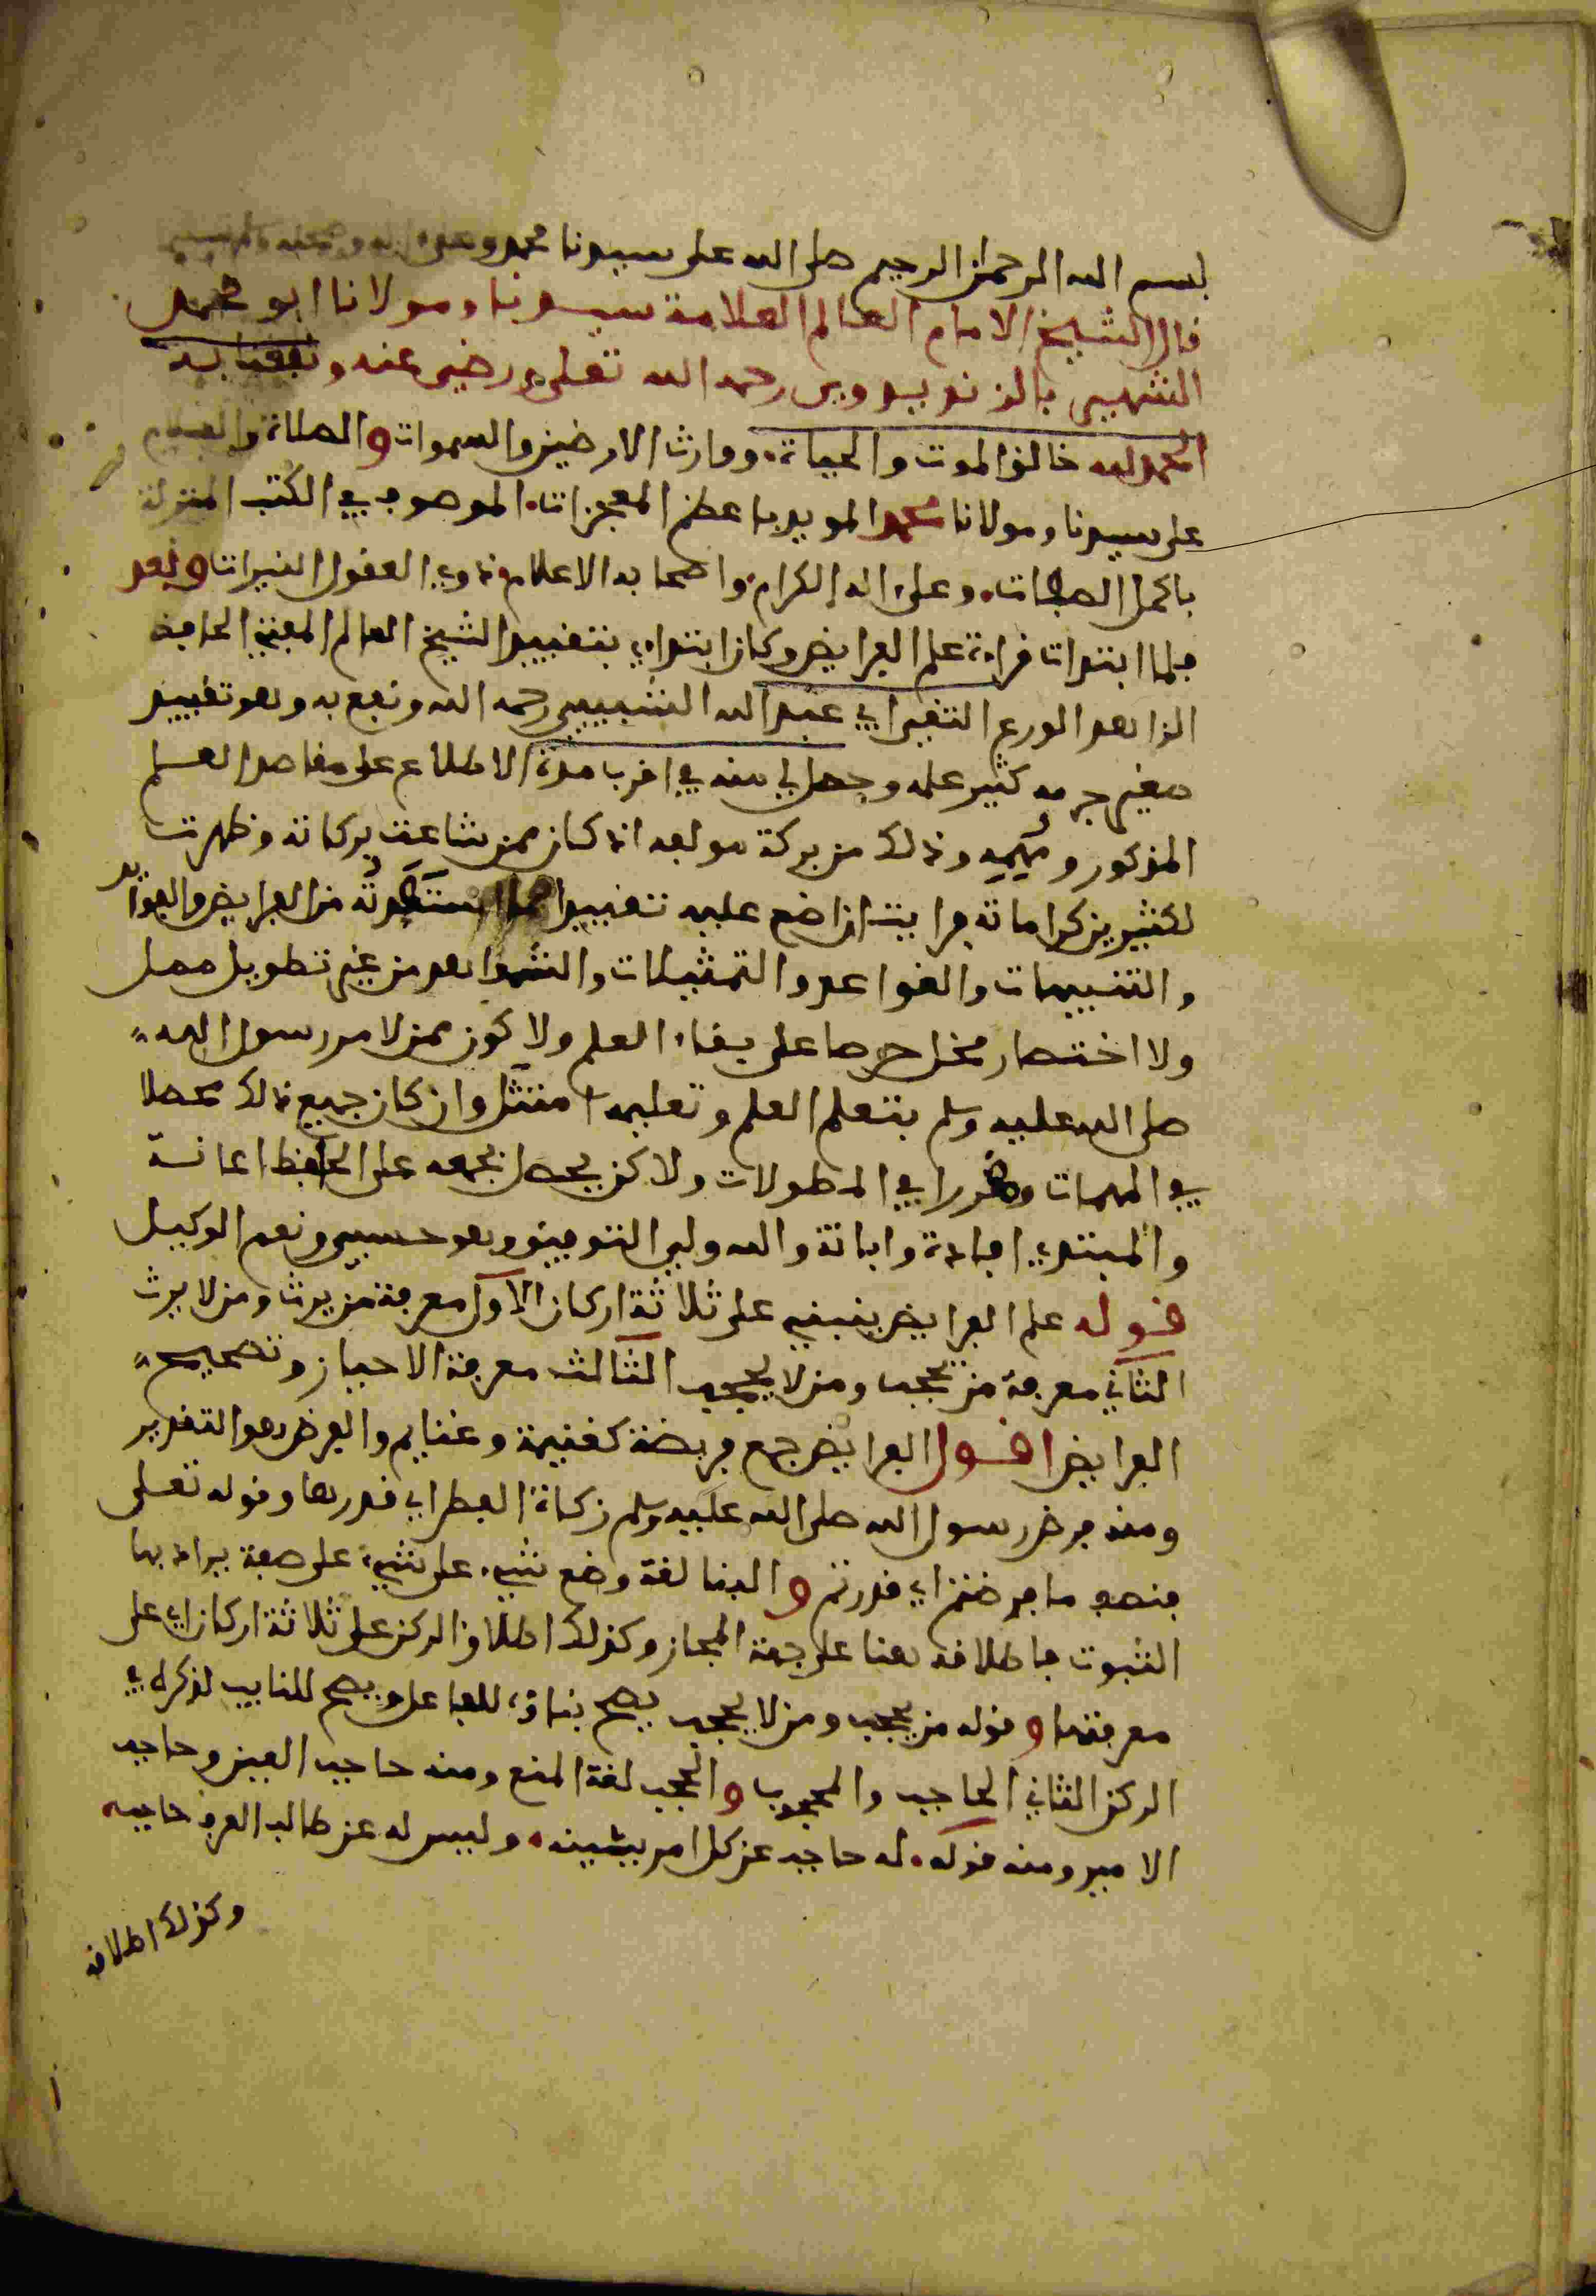 بسم الله الرحمان الرحيم صلى الله على سيدنا محمد وعلى ءاله وصحبه وسلم
قال الشيخ الامام العالم العلامة سيدنا ومولانا ابو محمد
الشهير رحمه الله تعلى ورضي عنه ونفعنا به
الحمد لله خالق الموت والحياة. ووارث الارضين والسموات والصلاة والسلام
على سيدنا ومولانا محمد المويد باعظم المعجزات. الموصوف في الكتب المنزلة
باكمل الصفات. وعلى ءاله الكرام. واصحابه الاعلام. ذوي العقول النيرات وبعد
فلما ابتدات قراءة علم الفرايض وكان ابتداءي بتقييد الشيخ العالم المفتي الحافظ
الزاهد الورع التقي ابي عبد الله الشبيبي رحمه الله ونفع به وهو تقييد
صغير جرمه كثير علمه وحصل لي منه في اقرب مدة الاطلاع على مقاصد العلم
المذكور وذلك من بركة مولفه اذ كان ممن شاعت بركاته وظهرت
لكثيرين كراماته فرايت ان اضع عليه تقييدا من الفرايض والفوايد
والتنبيهات والقواعد والتمثيلات والشواهد من غير تطويل ممل
ولا اختصار مخل حرصا على بقاء العلم ولاكون ممن لامر رسول الله
صلى الله عليه وسلم بتعلم العلم وتعليمه امتثل وان كان جميع ذلك محصلا
في المهمات ومقررا في المطولات ولاكن يحصل بجمعه على الحافظ اعانة
والمبتدي افادة وابانة والله ولي التوفيق وهو حسبي ونعم الوكيل
قوله علم الفرايض ينبني على ثلاثة اركان الاول معرفة من يرث ومن لا يرث
الثاني معرفة من يحجب ومن لا يحجب الثالث معرفة الاحياز وتصحيح
الفرايض اقول الفرايض جمع فريضة كغنيمة وغنايم والفرض هو التقدير
ومنه فرض رسول الله صلى الله عليه وسلم زكاة الفطر اي قدرها وقوله تعلى
فنصف ما فرضتم اي قدرتم والبنا لغة وضع شيء على شيء على صفة يراد بها
الثبوت فاطلاقه هنا على جهة المجاز وكذلك اطلاق الركن على ثلاثة اركان اي على
معرفتها وقوله من يحجب ومن لا يحجب يصح بناؤه للفاعل ويصح للنايب لذكره في
الركن الثاني الحاجب والمحجوب والحجب لغة المنع ومنه حاجب العين وحاجب
الامير ومنه قوله. له حاجب عن كل امر يشينه. وليس له عن طالب العرف حاجب.
وكذلك اطلاقه